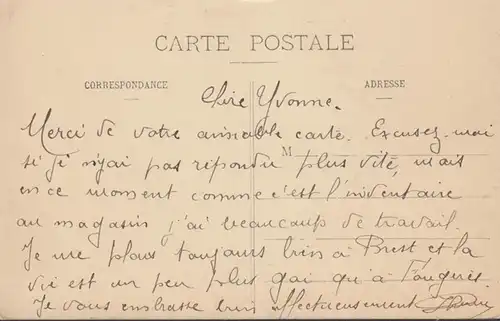 CARTE POSTALE
CORRESPONDANCE
ADRESSE
Chère Yvonne.
Merci de votre aimable carte. Excusez-moi
M
si je n'y ai pas répondu plus vite, mais
en ce moment comme c'est l'inventaire
au magasin j'ai beaucoup de travail.
Je me plais toujours bien à Brest et la
vie est un peu plus gai qu'à Fougères.
Je vous embrasse bien affectueusement